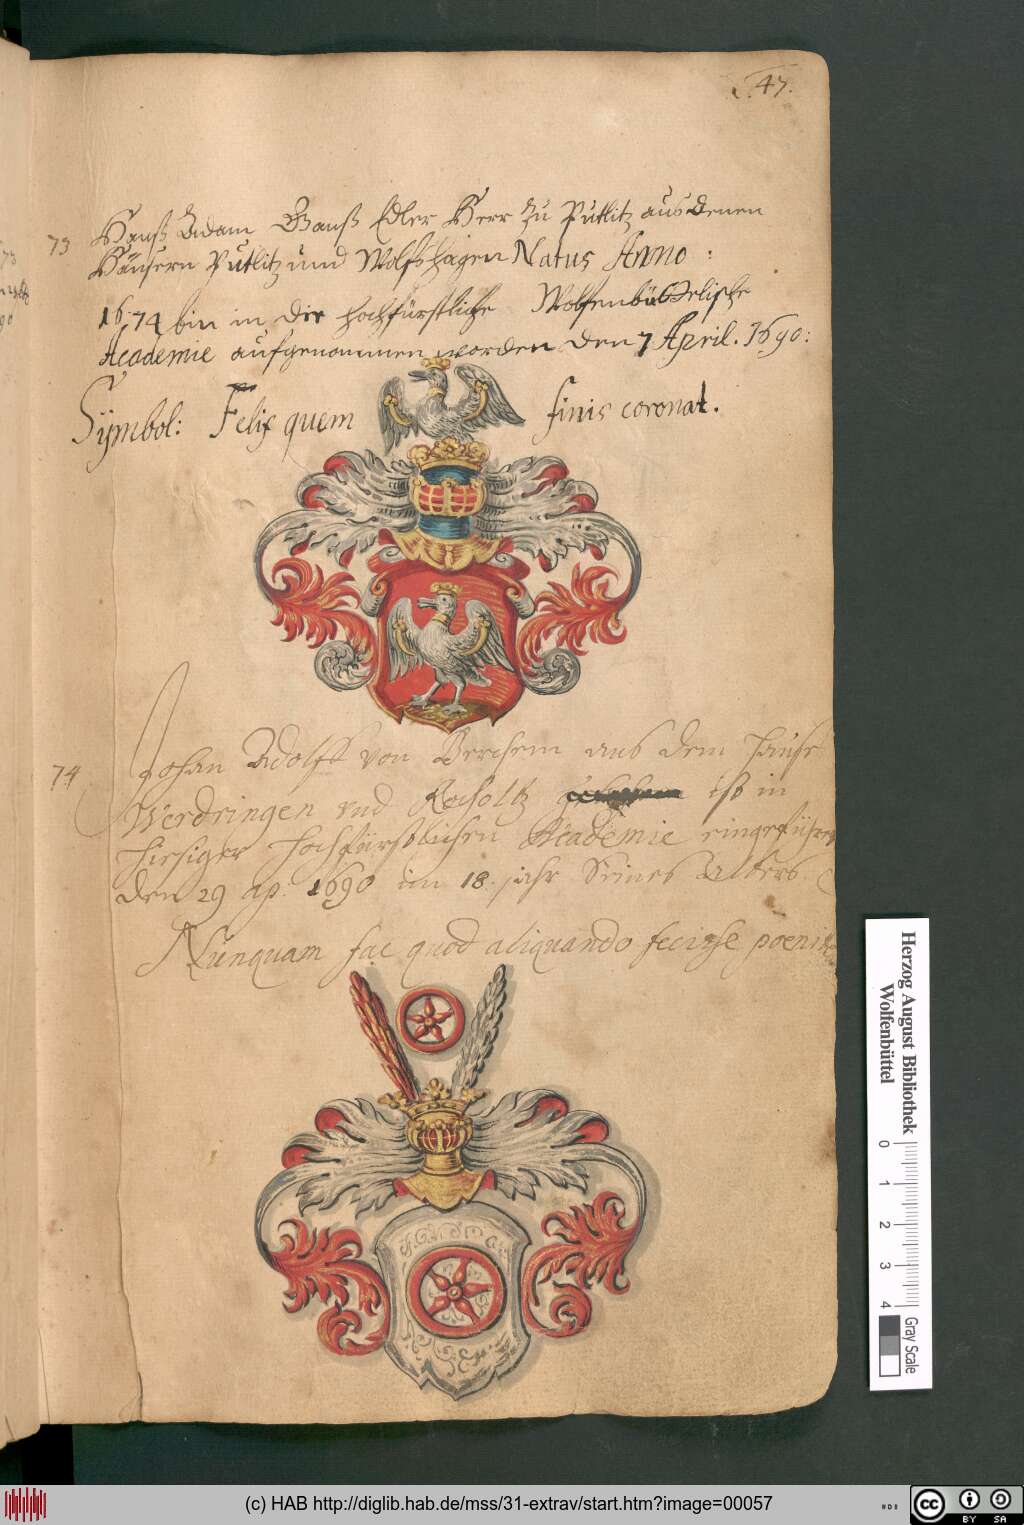 47.
73
Hanß Adam Ganß Edler Herr zu Putlitz aus denen
Häusern Putlitz und Wolfshagen Natus Anno:
1674 bin in die hochfürstliche Wolfenbüttelische
Academie aufgenommen worden den 7 April. 1690:
Sÿmbol: Felix quem finis coronat.
74
Johan Adolff von Berchem aus dem Hause
Werdringen vnd ist in
hiesiger hochfürstlichen Academie eingeführet
den 29 ap: 1690 im 18. jahr Seines alters
Nunquam fac quod aliquando fecisse
Herzog August Bibliothek
Wolfenbüttel
0 1 2 3 4
Gray Scale
(c) HAB http://diglib.hab.de/mss/31-extrav/start.htm?image=00057
cc BY SA